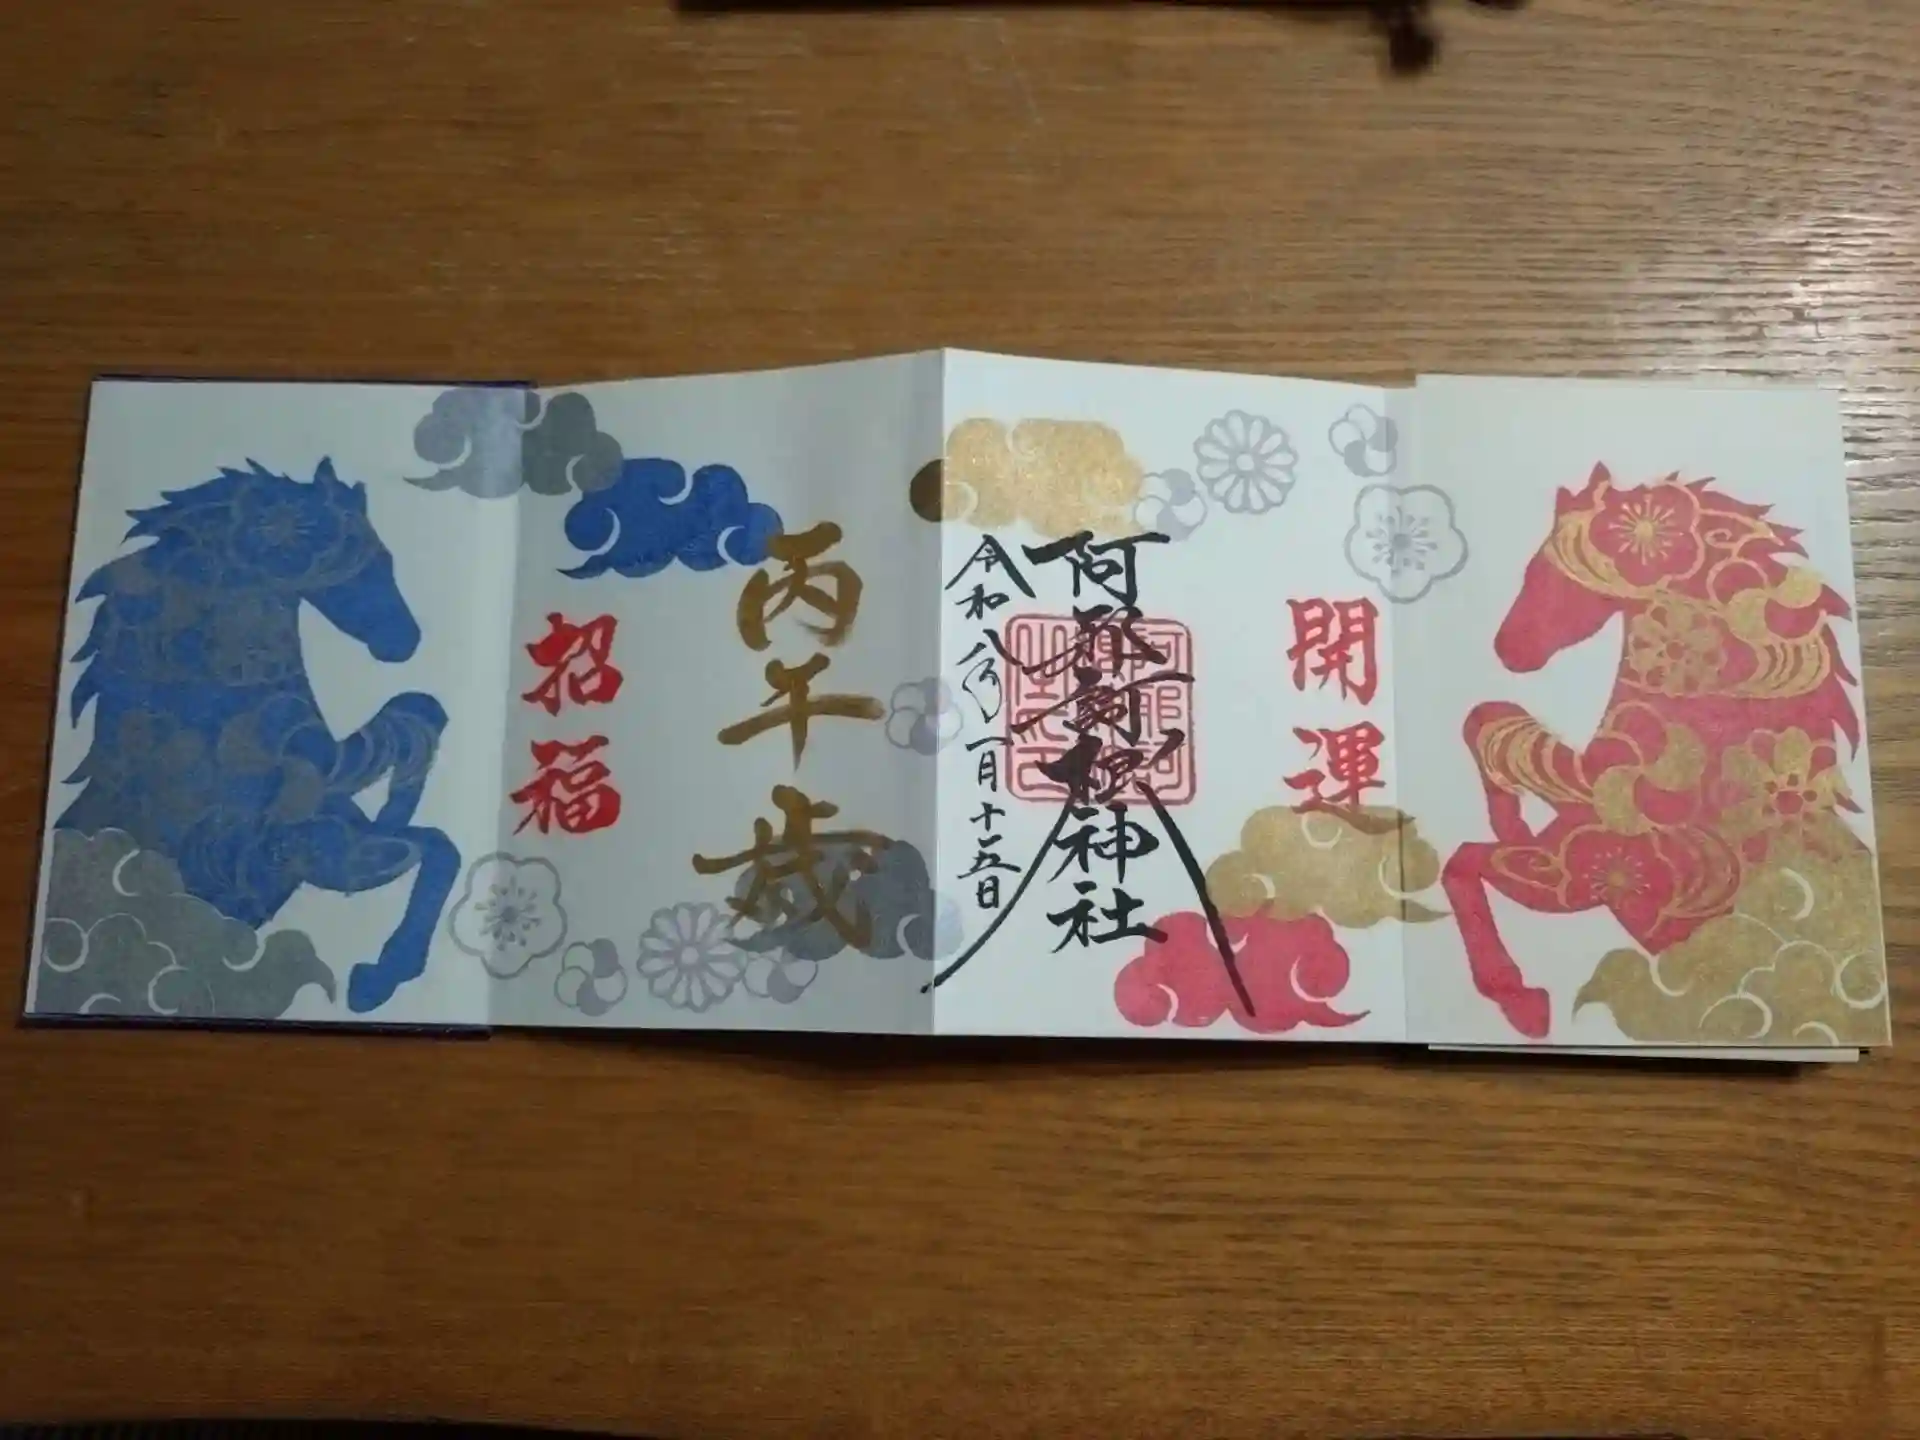 開運
阿邪訶根神社
令和八年一月十五日
丙午歳
招福